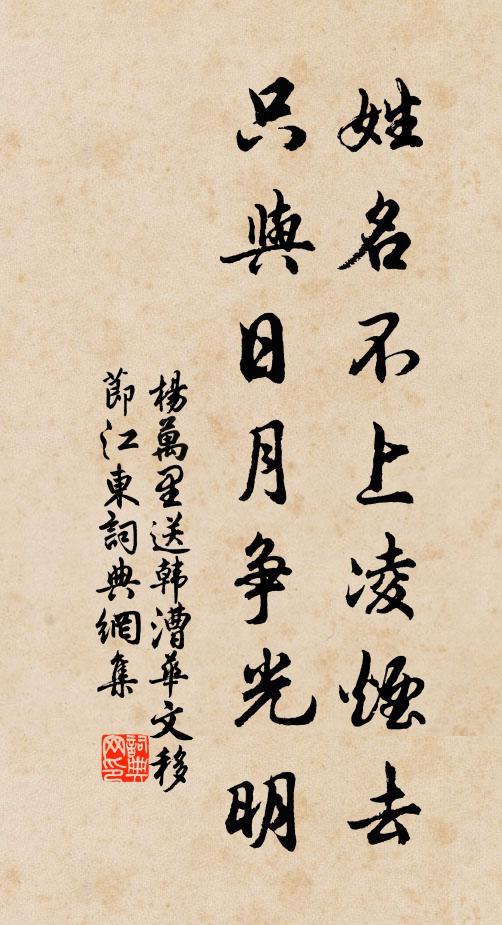 姓名不上凌煙去
只與日月争光明
楊萬里送韩漕華文移
節江東詞典網集
詞典
网印